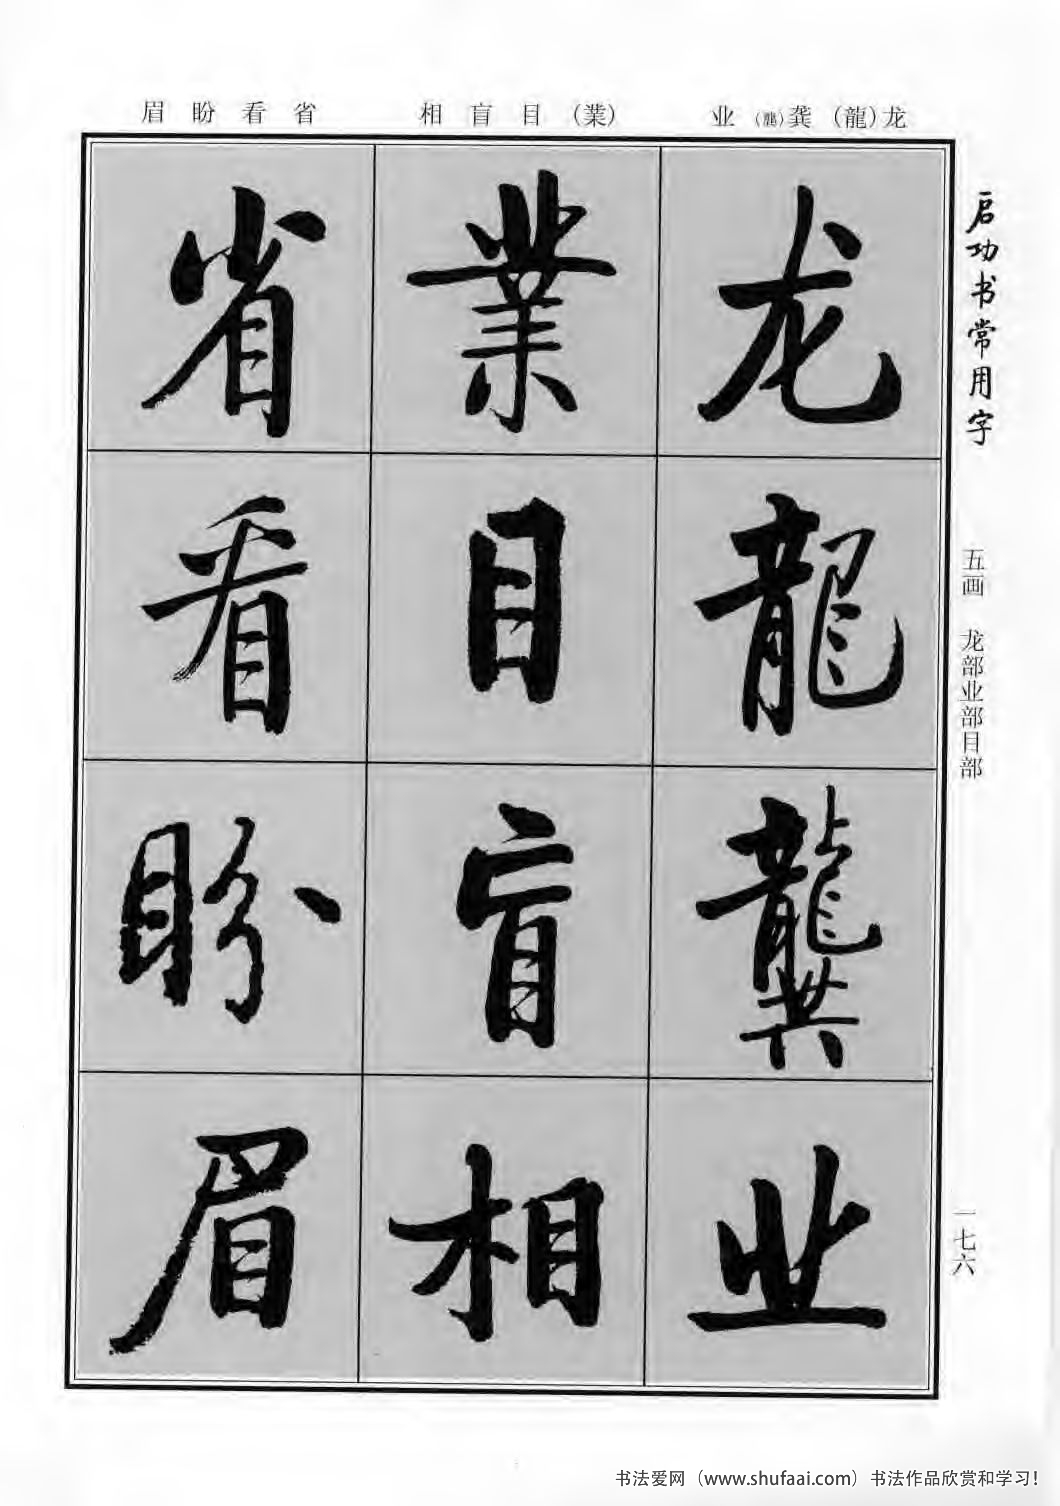 眉盼看省 相盲目(業) 业(龔)龚(龍)龙
启功书常用字
五画 龙部业部目部
一七六
龙
龍
龔
业
業
目
盲
相
省
看
盼
眉
书法爱网（www.shufaai.com）书法作品欣赏和学习！